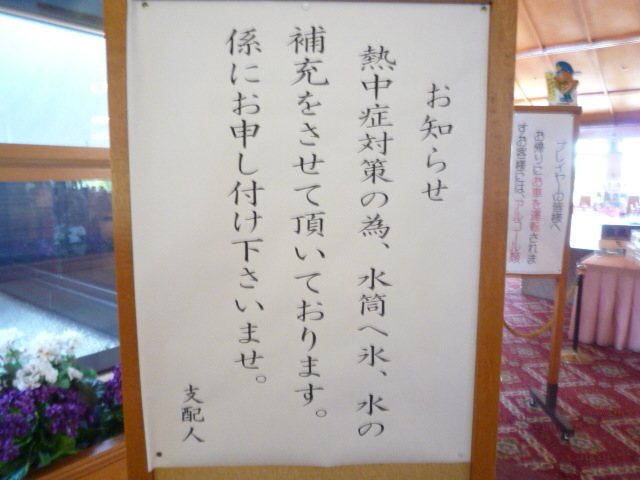 お知らせ
熱中症対策の為、水筒へ氷、水の
補充をさせて頂いております。
係にお申し付け下さいませ。
支配人
プレイヤーの皆様へ
お帰りにお車を運転されま
すお客様には、アルコール類